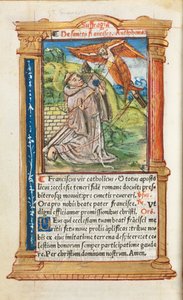 Suffragia
De sancto Francisco. Antiphona
Franciscus vir catholicus / & totus aposto
licus: ecclesie teneri fidē romane docuit: presbi
terosq; monuit pre cunctis revereri. Versus.
Ora pro nobis beate pater francisce. Re. Ut
digni efficiamur promissionibus christi. Orō.
Deus qui ecclesiam tuam beati francisci me
ritis fetu nove prolis
eius imitatione terrena despicere: & ce
lestium donorum semper participatione gaude
re. Per christum dominum nostrum. Amen.